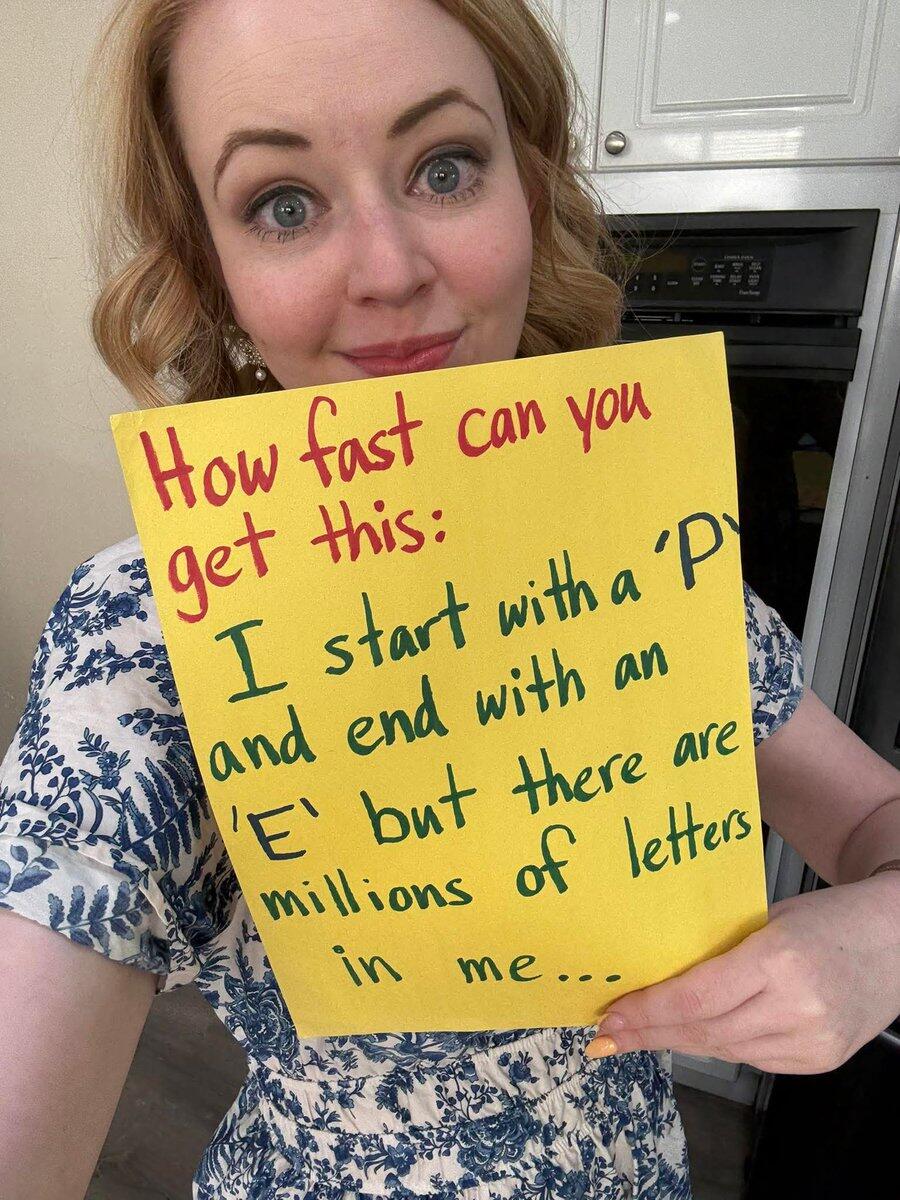 How fast can you
get this:
I start with a 'P'
and end with an
'E' but there are
millions of letters
in me...